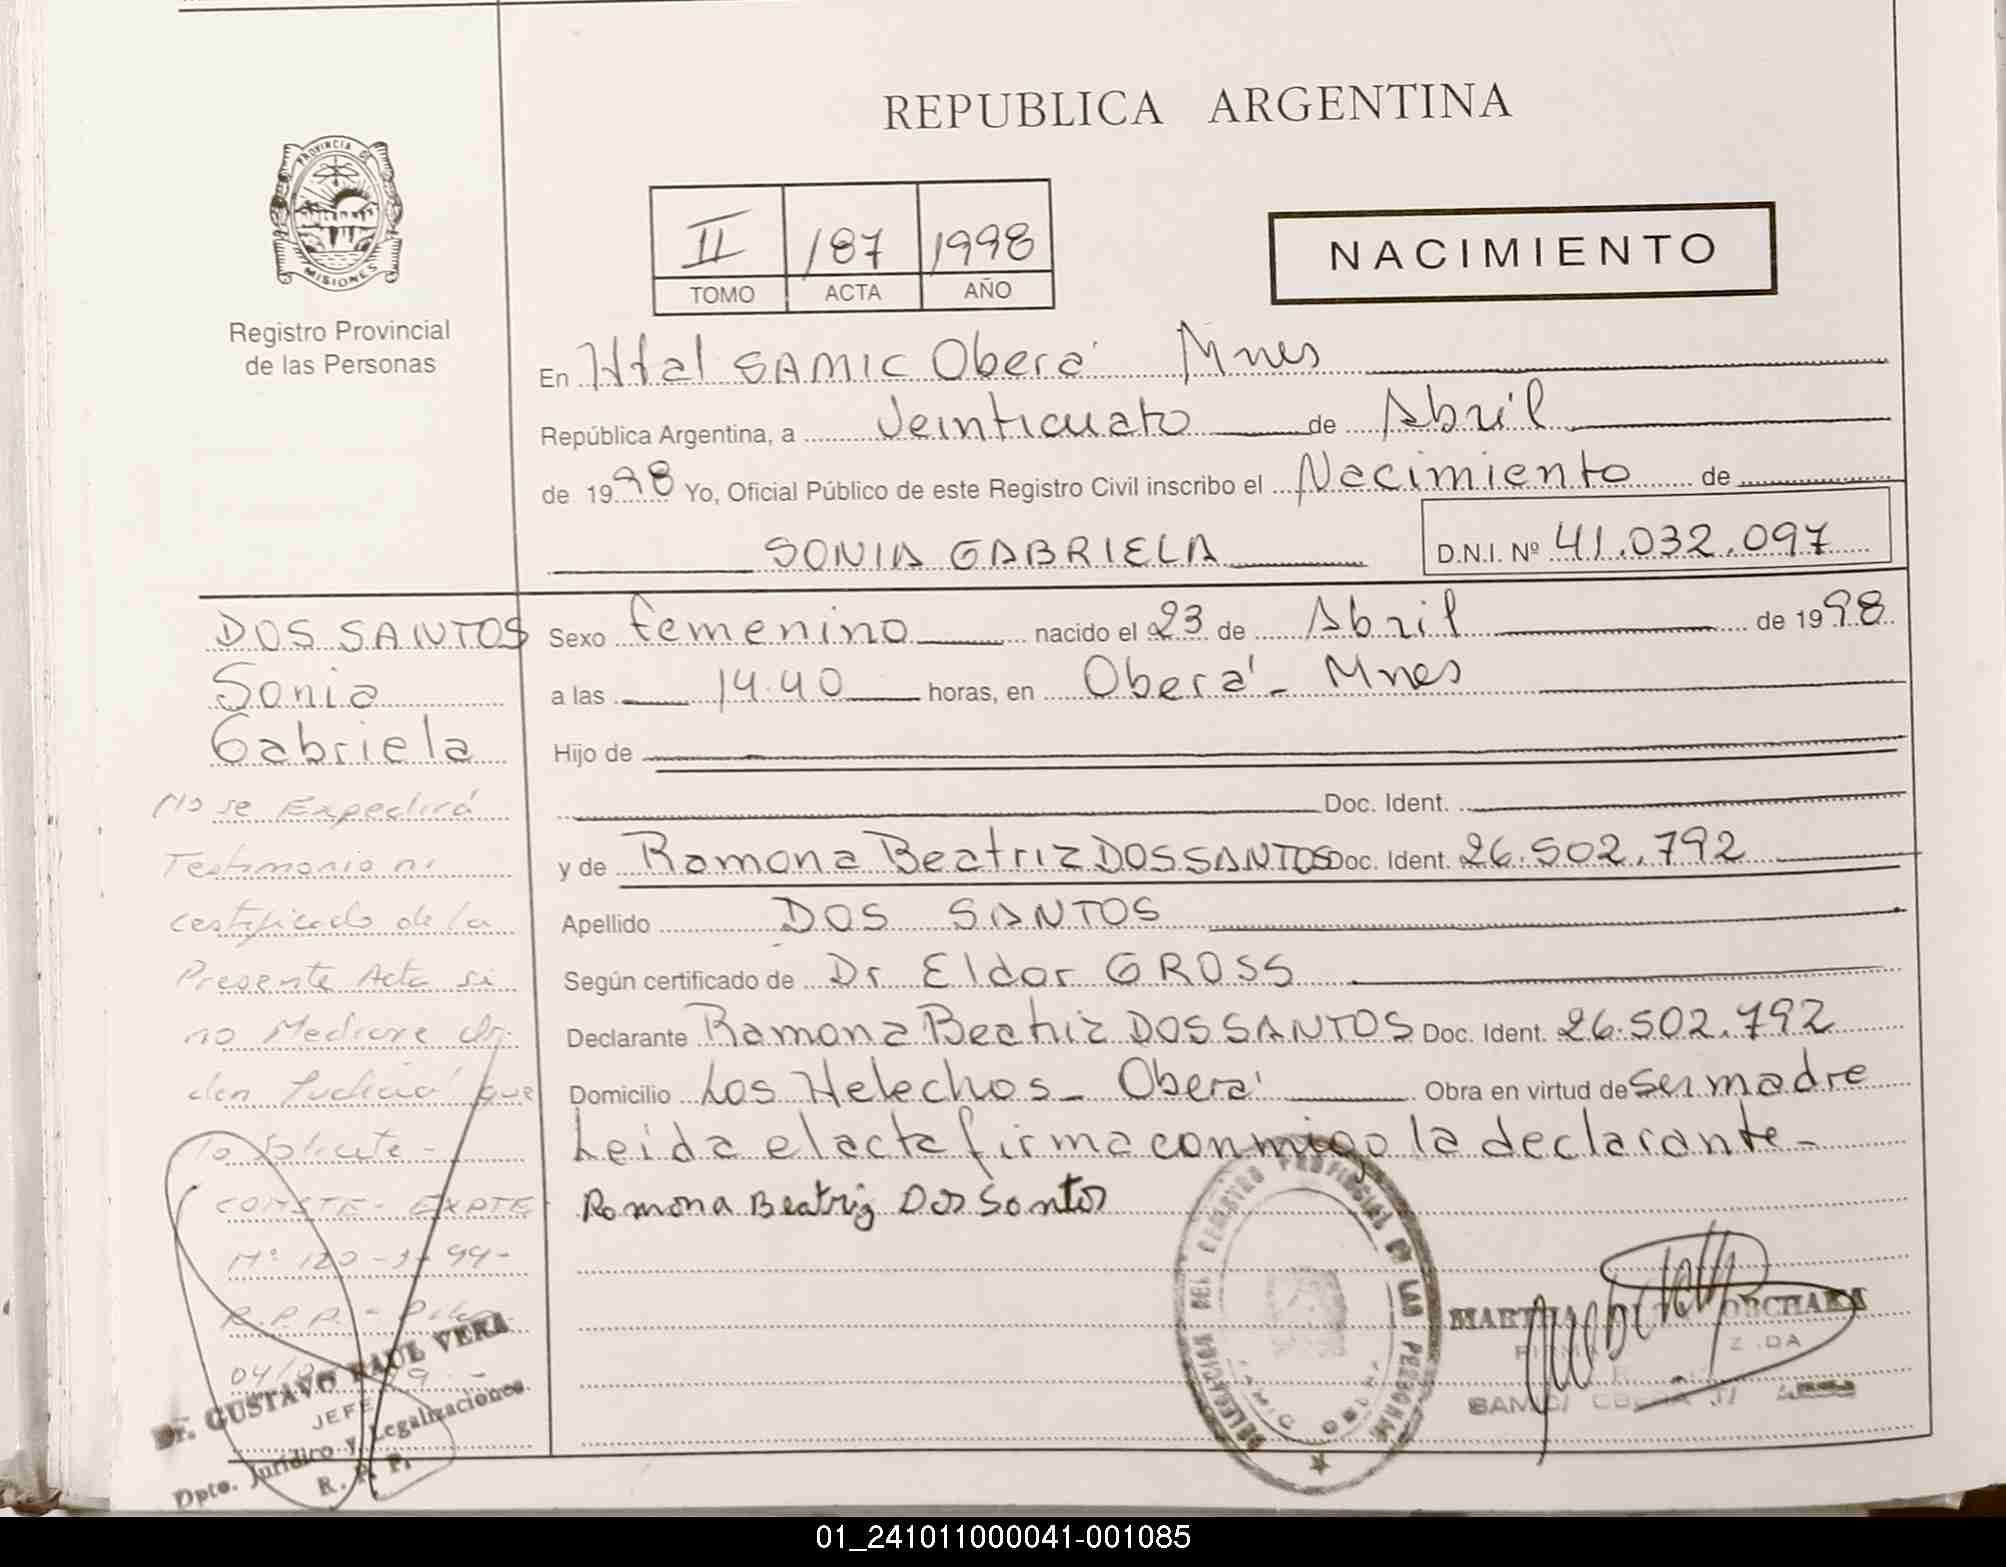 REPUBLICA ARGENTINA
PROVINCIA DE
MISIONES
Registro Provincial
de las Personas
II 187 1998
TOMO ACTA AÑO
NACIMIENTO
En Htal SAMIC Oberá Mnes
República Argentina, a Veinticuato de Abril
de 1998 Yo, Oficial Público de este Registro Civil inscribo el Nacimiento de
SONIA GABRIELA D.N.I. Nº 41.032.097
DOS SANTOS
Sonia
Gabriela
No se Expedirá
Testimonio ni
certificado de la
Presente Acta si
no Mediare Or-
den Judicial que
lo Solicite -
CONSTE - EXPTE
Nº 120 - 99 -
R.P.P. -
04/
Dr. GUSTAVO RAUL VERA
JEFE
Dpto. Jurídico y Legalizaciones
R. P. P.
Sexo femenino nacido el 23 de Abril de 1998
a las 14.40 horas, en Oberá - Mnes
Hijo de
Doc. Ident.
y de Ramona Beatriz DOS SANTOS Doc. Ident. 26.502.792
Apellido DOS SANTOS
Según certificado de Dr Eldor GROSS
Declarante Ramona Beatriz DOS SANTOS Doc. Ident. 26.502.792
Domicilio Los Helechos - Oberá Obra en virtud de ser madre
Leida el acta firma conmigo la declarante -
Ramona Beatriz Dos Santos
DELEGACION DEL REGISTRO PROVINCIAL DE LAS PERSONAS
SAMIC OBERA
MARTHA
SAMIC
01_241011000041-001085